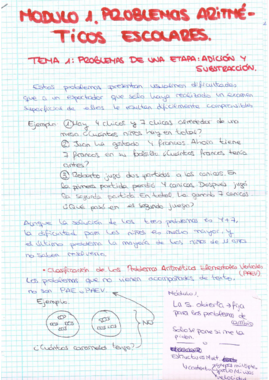 MODULO 1. PROBLEMAS ARITMÉ-
TICOS ESCOLARES.
TEMA 1: PROBLEMAS DE UNA ETAPA: ADICIÓN Y
SUBSTRACCIÓN.
Estos problemas presentan usualmente dificultades
que a un espectador que solo haya realizado un examen
superficial de ellos le resultan difícilmente comprensibles.
Ejemplo: ① Hay 4 chicos y 7 chicas alrededor de una
mesa ¿Cuántos niños hay en total?
② Juan ha gastado 4 francos. Ahora tiene
7 francos en su bolsillo ¿Cuántos francos tenía
antes?
③ Roberto jugó dos partidas a las canicas. En
la primera partida perdió 4 canicas. Después jugó
la segunda partida. En total ha ganado 7 canicas
¿Qué pasó en el segundo juego?
Aunque la solución de los tres problemas es 4+7,
la dificultad para los niños es mucho mayor y
el último problema la mayoría de los niños de 11 años
no saben resolverlo.
Clasificación de los Problemas Aritméticos Elementales Verbales
(PAEV)
Los problemas que no vienen acompañados de texto,
no son PAE → PAEV
Ejemplo:
NO
¿Cuántos caramelos tengo?
Modulo:
La S.
para los problemas de
Solo se pone si me lo
piden